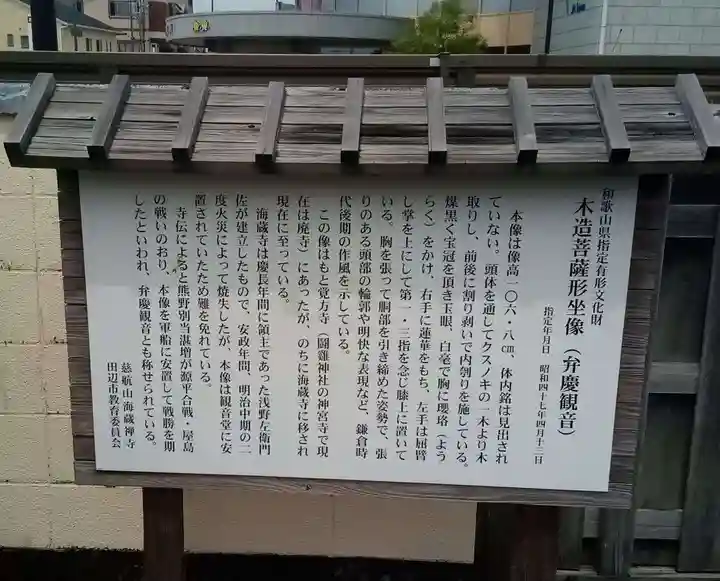 和歌山県指定有形文化財
木造菩薩形坐像(弁慶観音)
指定年月日　昭和四十七年四月十三日
本像は像高一〇六・八㎝、体内銘は見出され
ていない。頭体を通してクスノキの一木より木
取りし、前後に割り剥いで内刳りを施している。
煤黒く宝冠を頂き玉眼、白毫で胸に瓔珞(よう
らく)をかけ、右手に蓮華をもち、左手は屈臂
し掌を上にして第一・三指を念じ膝上に置いて
いる。胸を張って胴部を引き締めた姿勢で、張
りのある頭部の輪郭や明快な表現など、鎌倉時
代後期の作風を示している。
この像はもと覚方寺(闘雞神社の神宮寺で現
在は廃寺)にあったが、のちに海蔵寺に移され
現在に至っている。
海蔵寺は慶長年間に領主であった浅野左衛門
佐が建立したもので、安政年間、明治中期の二
度火災によって焼失したが、本像は観音堂に安
置されていたため難を免れている。
寺伝によると熊野別当湛増が源平合戦・屋島
の戦いのおり、本像を軍船に安置して戦勝を期
したといわれ、弁慶観音とも称せられている。
慈航山海蔵禅寺
田辺市教育委員会